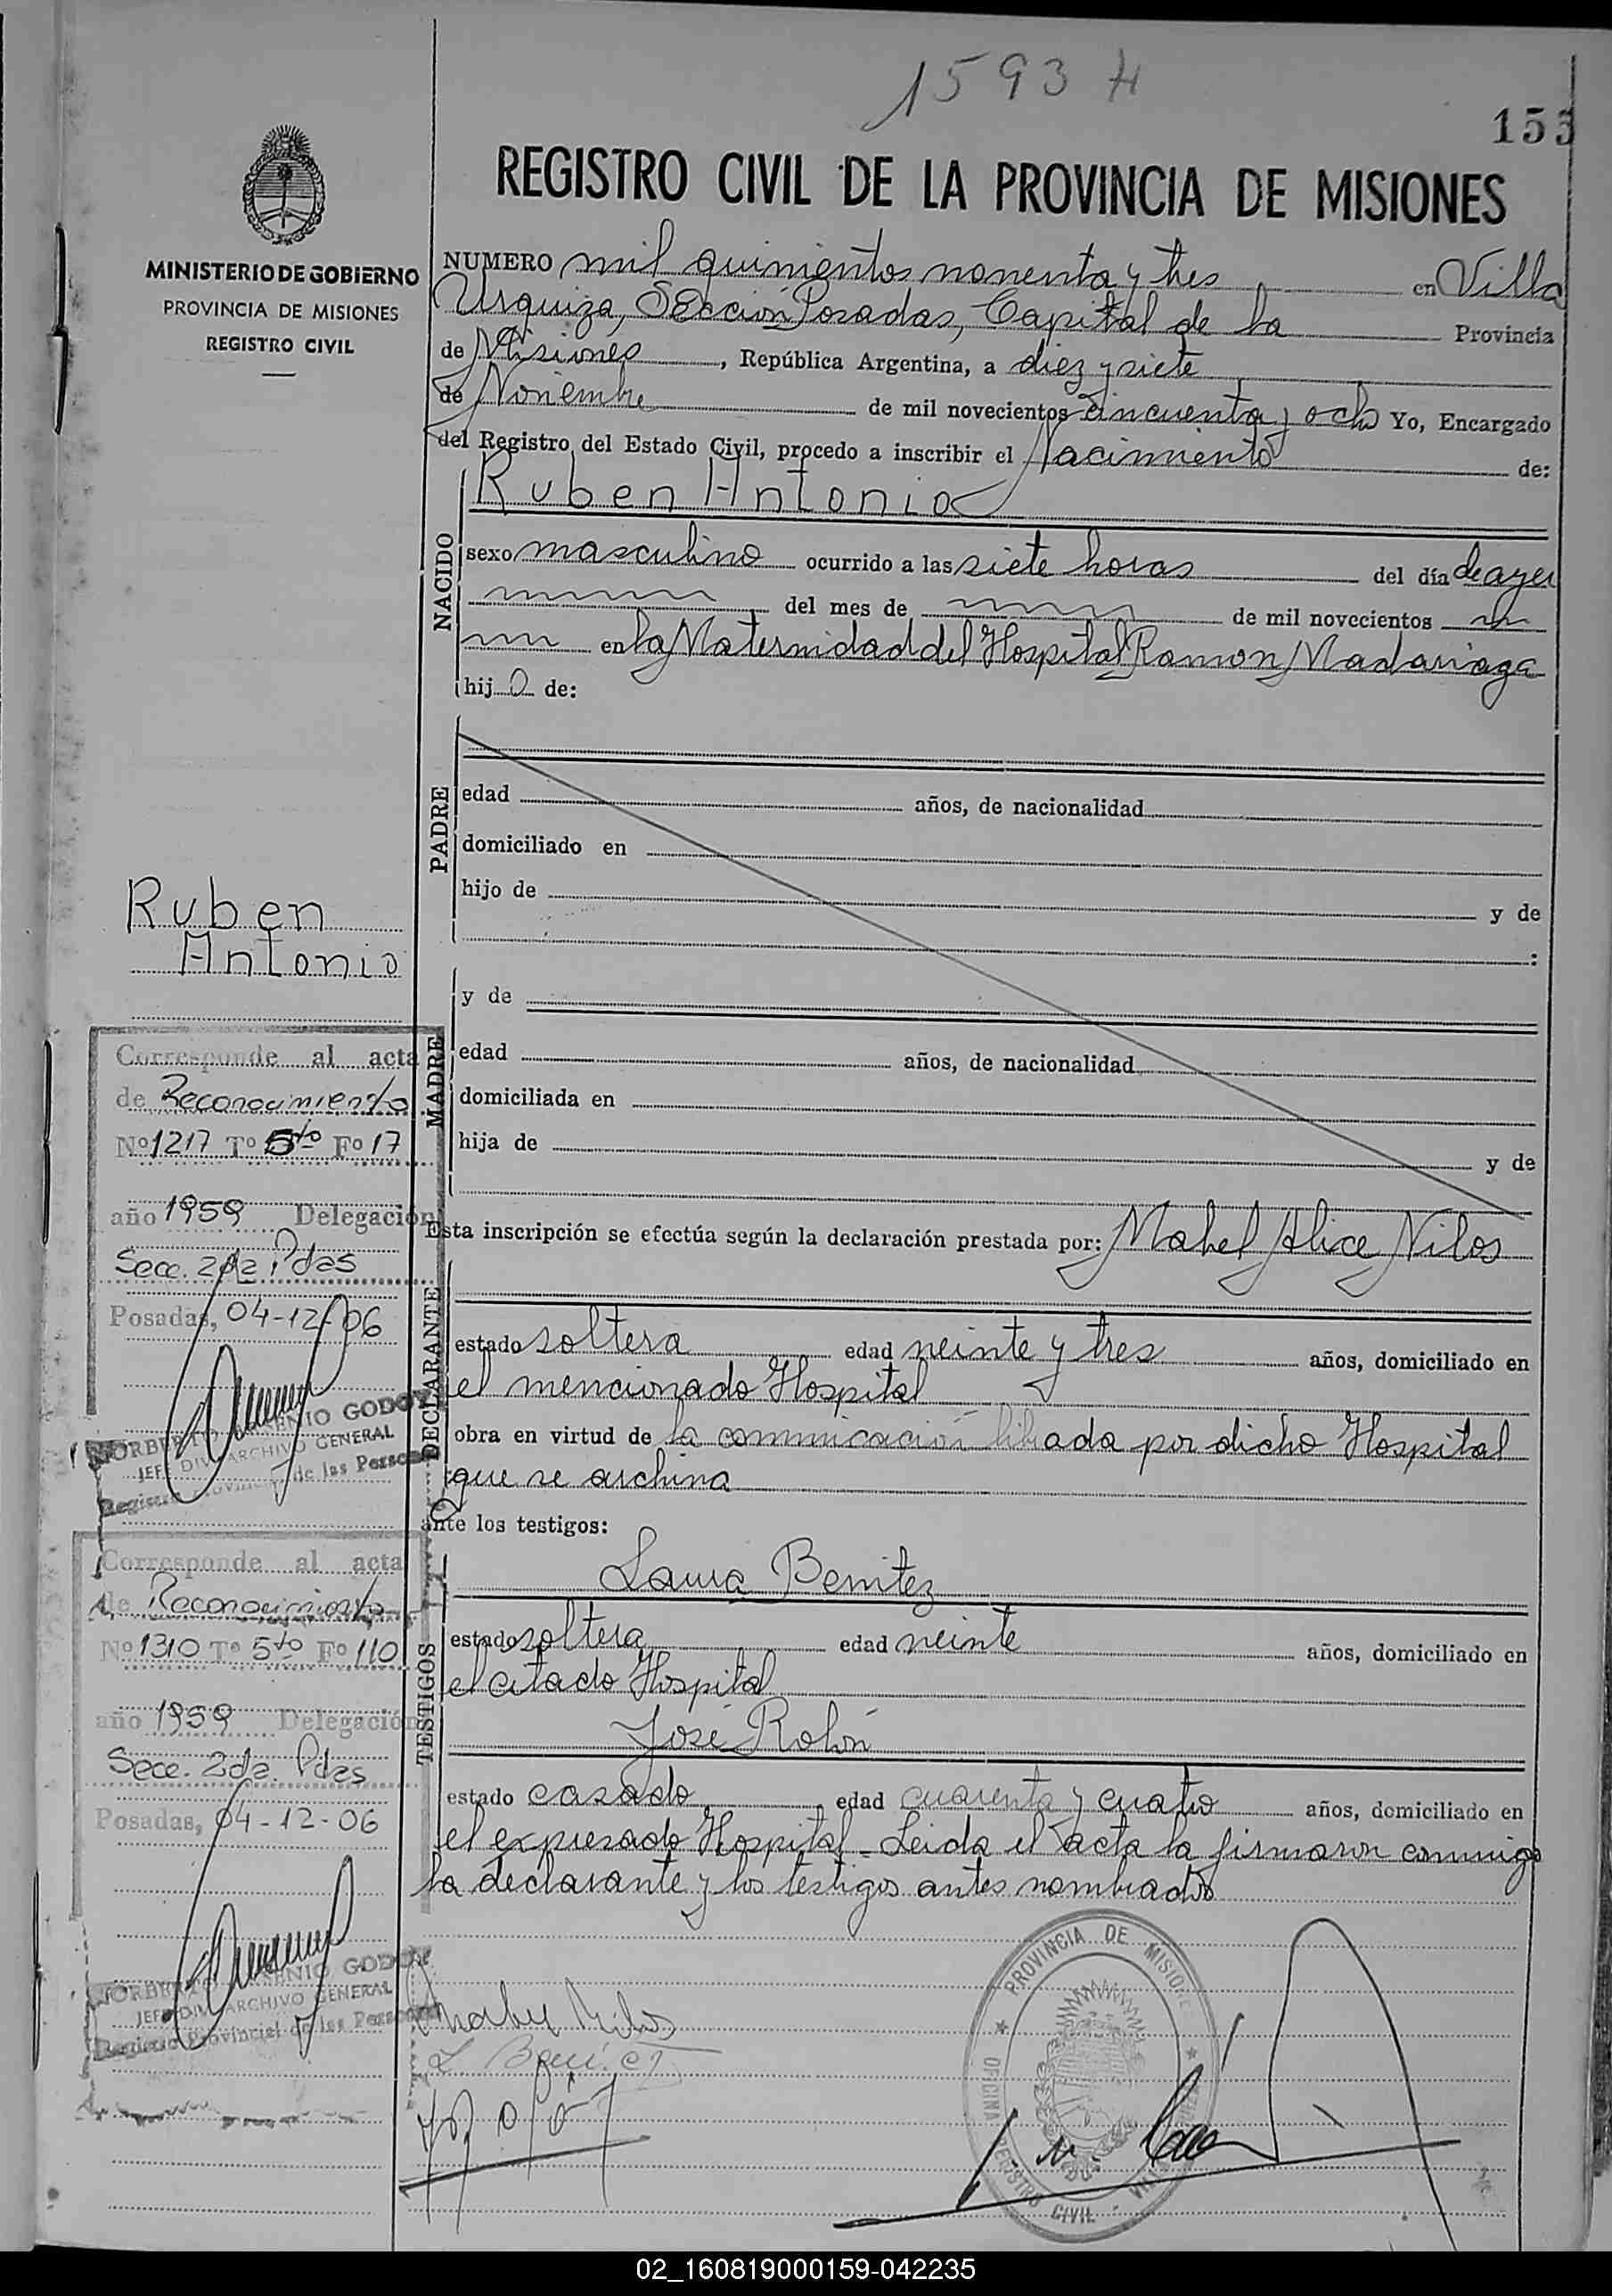 1593 H
153
REGISTRO CIVIL DE LA PROVINCIA DE MISIONES
MINISTERIO DE GOBIERNO
PROVINCIA DE MISIONES
REGISTRO CIVIL
NUMERO mil quinientos noventa y tres en Villa
Urquiza, Sección Posadas, Capital de la Provincia
de Misiones, República Argentina, a diez y siete
de Noviembre de mil novecientos cincuenta y ocho Yo, Encargado
del Registro del Estado Civil, procedo a inscribir el Nacimiento de:
NACIDO
Ruben Antonio
sexo masculino ocurrido a las siete horas del día de ayer
del mes de de mil novecientos
en la Maternidad del Hospital Ramon Madariaga
hijo de:
PADRE
edad años, de nacionalidad
domiciliado en
hijo de y de
:
Ruben
Antonio
MADRE
y de
edad años, de nacionalidad
domiciliada en
hija de y de
Corresponde al acta
de Reconocimiento
Nº 1217 Tº 5to Fº 17
año 1959 Delegación
Secc. 2da Pdas
Posadas, 04-12-06
NORBERTO GODOY
JEFE DIV. ARCHIVO GENERAL
Registro Provincial de las Personas
DECLARANTE
Esta inscripción se efectúa según la declaración prestada por: Mabel Alice Nilos
estado soltera edad veinte y tres años, domiciliado en
el mencionado Hospital
obra en virtud de la comunicación librada por dicho Hospital
que se archiva
ante los testigos:
TESTIGOS
Laura Benitez
estado soltera edad veinte años, domiciliado en
el citado Hospital
José Rolón
estado casado edad cuarenta y cuatro años, domiciliado en
el expresado Hospital - Leida el acta la firmaron conmigo
la declarante y los testigos antes nombrados
Corresponde al acta
de Reconocimiento
Nº 1310 Tº 5to Fº 110
año 1959 Delegación
Secc. 2da. Pdas
Posadas, 04-12-06
NORBERTO GODOY
JEFE DIV. ARCHIVO GENERAL
Registro Provincial de las Personas
Mabel Nilos
L. Benitez
PROVINCIA DE MISIONES
OFICINA REGISTRO CIVIL
02_160819000159-042235